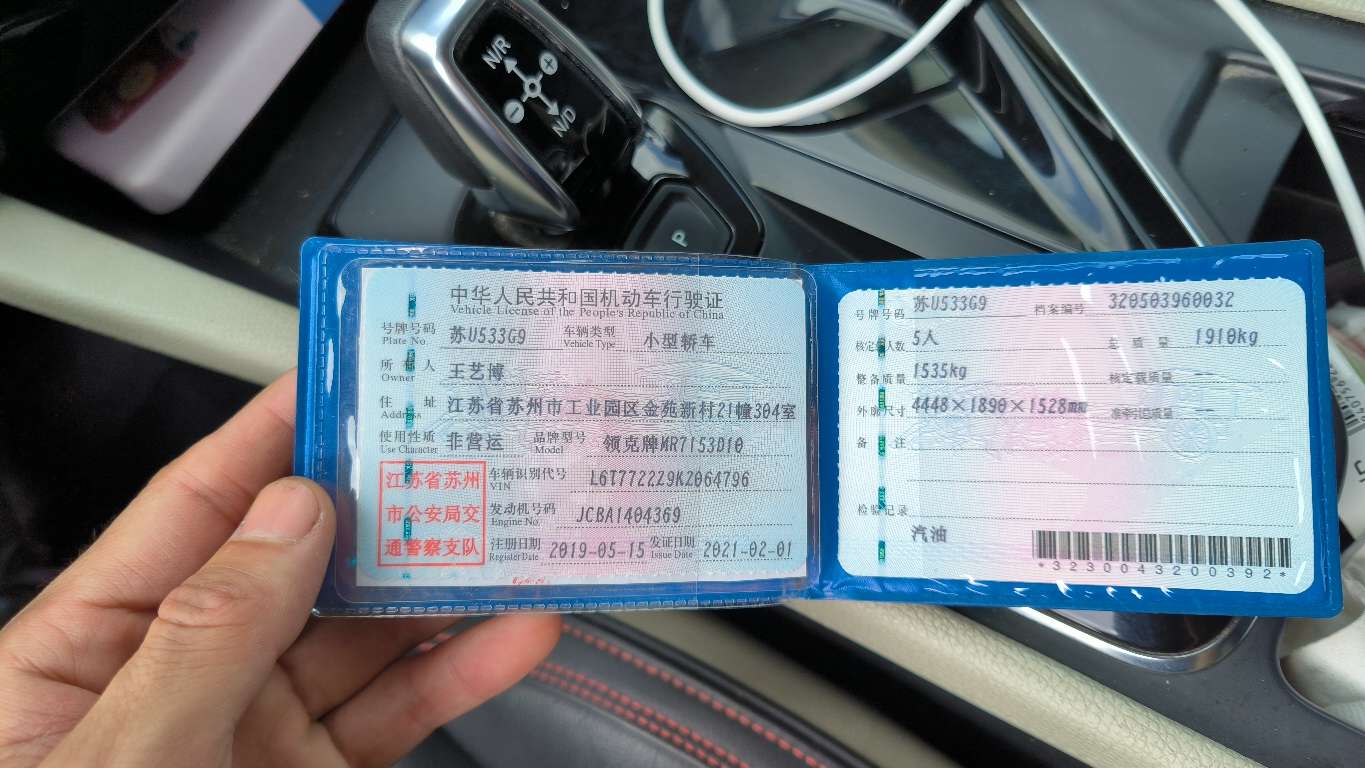 N/R
N/D
P
中华人民共和国机动车行驶证
Vehicle License of the People's Republic of China
号牌号码 苏U533G9 车辆类型 小型轿车
Plate No. Vehicle Type
所有人 王艺博
Owner
住址 江苏省苏州市工业园区金苑新村21幢304室
Address
使用性质 非营运 品牌型号 领克牌MR7153D10
Use Character Model
江苏省苏州
市公安局交
通警察支队
车辆识别代号 L6T7722Z9KZ064796
VIN
发动机号码 JCBA1404369
Engine No.
注册日期 2019-05-15 发证日期 2021-02-01
Register Date Issue Date
号牌号码 苏U533G9 档案编号 320503960032
核定载人数 5人 总质量 1910kg
整备质量 1535kg 核定载质量 --
外廓尺寸 4448×1890×1528mm 准牵引总质量 --
备注
检验记录
汽油
*3230043200392*